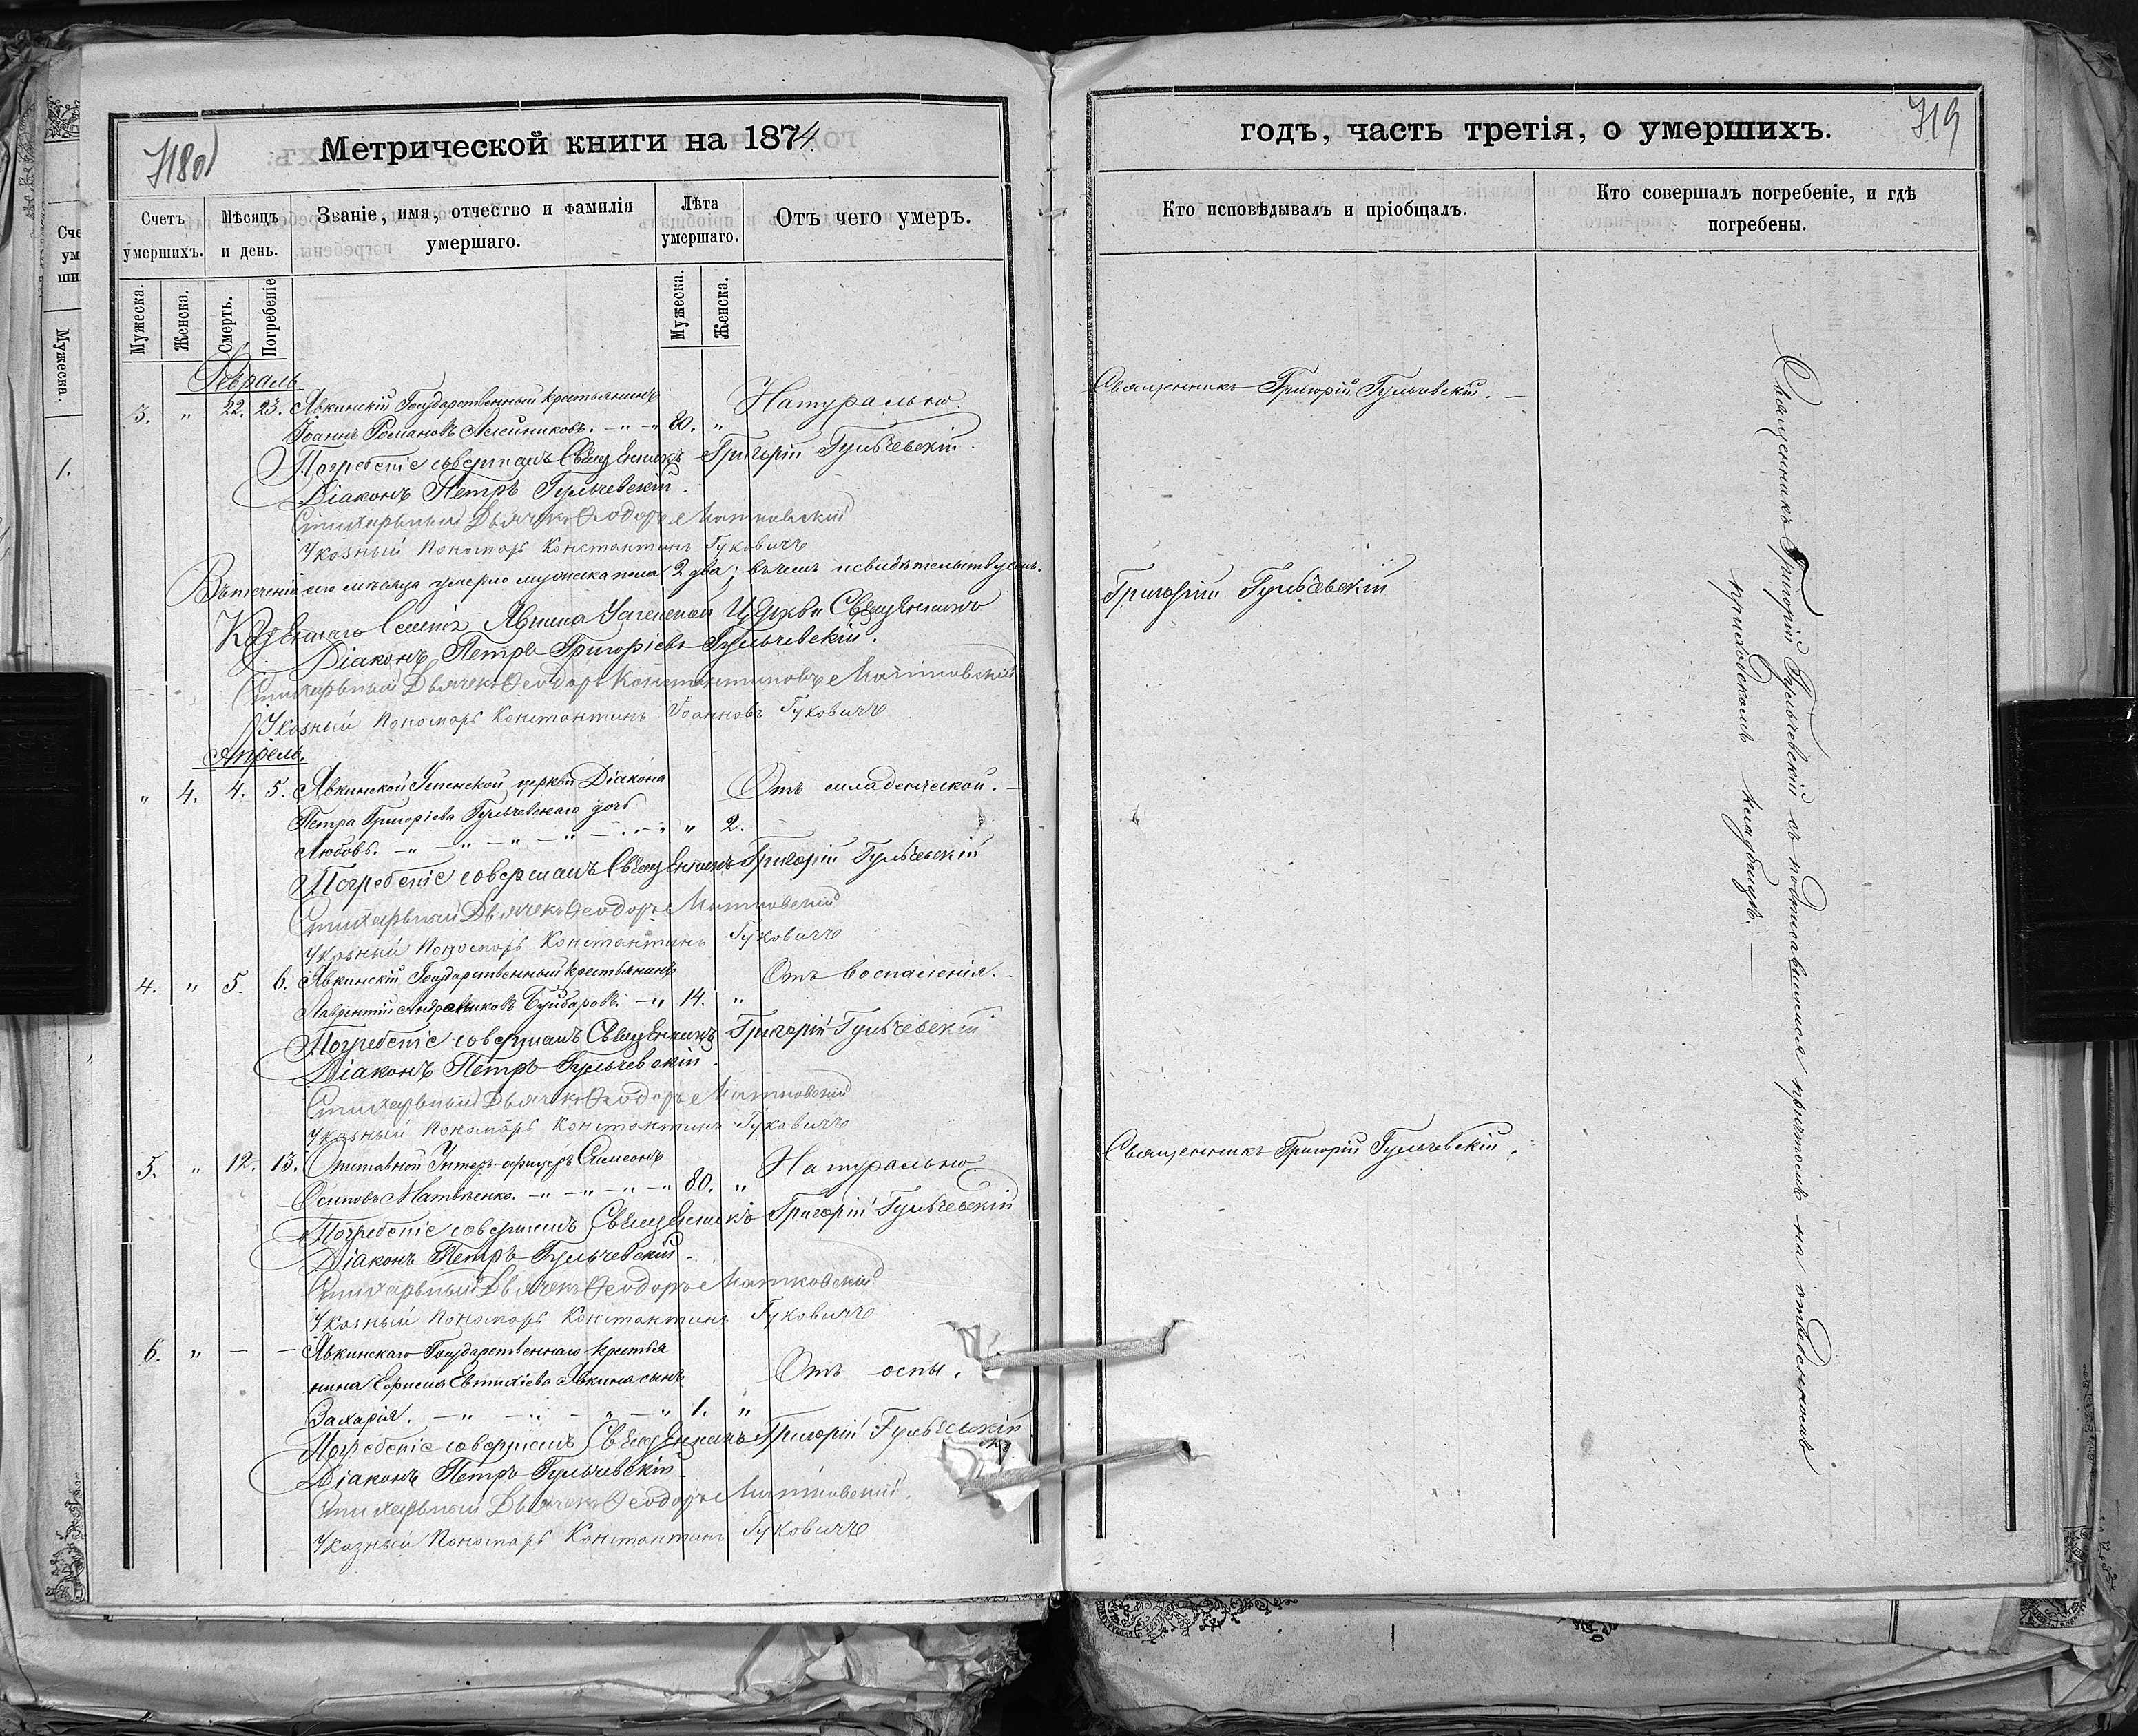 718об
Метрической книги на 1874
Счетъ умершихъ.
Мѣсяцъ и день.
Званіе, имя, отчество и фамилія умершаго.
Лѣта умершаго.
Отъ чего умеръ.
Мужеска.
Женска.
Смерть.
Погребеніе
Мужеска.
Женска.
Февраль
3. " 22. 23. Явкинскій Государственный крестьянинъ Натурально.
Іоаннъ Романовъ Олейниковъ. - " - " 80. "
Погребеніе совершалъ Священникъ Григорій Гульчевскій
Діаконъ Петръ Гульчевскій.
Стихарьный Дьячекъ Ѳеодоръ Матковскій
Указный Пономарь Константинъ Гуковичъ
Въ теченіи сего мѣсяца умерло мужеска пола 2 два; въ чемъ и свидѣтельствуемъ.
Казеннаго Селенія Явкина Успенской Церкви Священникъ
Діаконъ Петръ Григоріевъ Гульчевскій.
Стихарьный Дьячекъ Ѳеодоръ Константиновъ Матковскій
Указный Пономарь Константинъ Іоанновъ Гуковичъ
Апрель.
" 4. 4. 5. Явкинской Успенской церкви Діакона Отъ младенческой. -
Петра Григоріева Гульчевскаго дочь
Любовь. - " - " - " - " - " - " " 2.
Погребеніе совершалъ Священникъ Григорій Гульчевскій
Стихарьный Дьячекъ Ѳеодоръ Матковскій
Указный Пономарь Константинъ Гуковичъ
4. " 5. 6. Явкинскій Государственный крестьянинъ Отъ воспаленія. -
Лаврентій Андрониковъ Бумбаровъ. - " 14. "
Погребеніе совершалъ Священникъ Григорій Гульчевскій
Діаконъ Петръ Гульчевскій.
Стихарьный Дьячекъ Ѳеодоръ Матковскій
Указный Пономарь Константинъ Гуковичъ
5. " 12. 13. Отставной Унтеръ-офицеръ Симеонъ Натурально.
Осиповъ Матвѣенко. - " - " - " - " 80. "
Погребеніе совершалъ Священникъ Григорій Гульчевскій
Діаконъ Петръ Гульчевскій.
Стихарьный Дьячекъ Ѳеодоръ Матковскій
Указный Пономарь Константинъ Гуковичъ
6. " - - Явкинскаго Государственнаго крестья
нина Ефрема Евтихіева Явкина сынъ Отъ оспы.
Захарія. - " - " - " - " 1. "
Погребеніе совершалъ Священникъ Григорій Гульчевскій
Діаконъ Петръ Гульчевскій
Стихарьный Дьячекъ Ѳеодоръ Матковскій.
Указный Пономарь Константинъ Гуковичъ
719
годъ, часть третія, о умершихъ.
Кто исповѣдывалъ и пріобщалъ.
Кто совершалъ погребеніе, и гдѣ погребены.
Священникъ Григорій Гульчевскій. -
Григорій Гульчевскій
Священникъ Григорій Гульчевскій.
Священникъ Григорій Гульчевскій съ подписавшимся причтомъ на отведенномъ
приходскомъ кладбищѣ. -
Сче
ум
ши
Мужеска.
1.